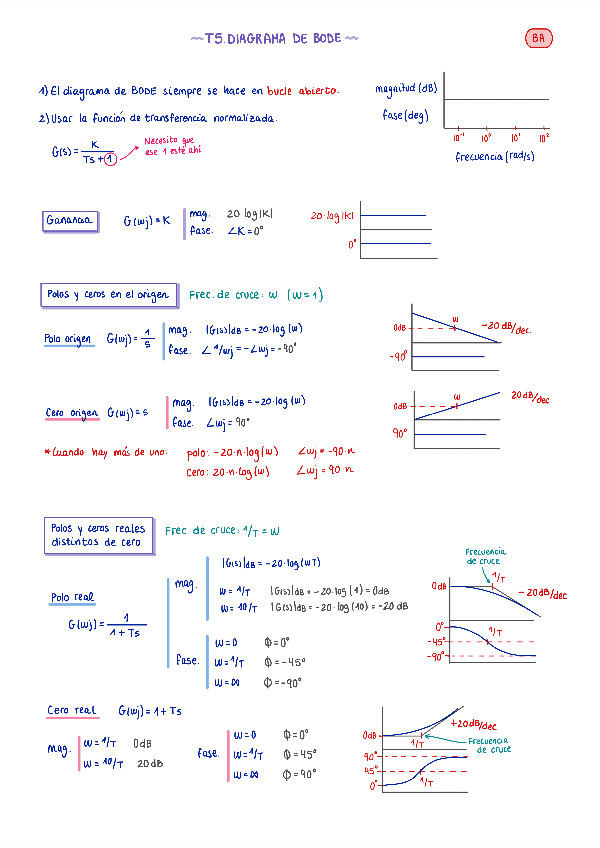 ~T5. DIAGRAMA DE BODE~
BA
1) El diagrama de BODE siempre se hace en bucle abierto.
2) Usar la función de transferencia normalizada.
G(s) = K / Ts + 1
Necesito que
ese 1 esté ahí
magnitud (dB)
fase (deg)
10⁻¹ 10⁰ 10¹ 10²
frecuencia (rad/s)
Ganancia
G(wj) = K
mag. 20·log|K|
fase. ∠K = 0°
20·log|K|
0°
Polos y ceros en el origen
Frec. de cruce: w (w = 1)
Polo origen G(wj) = 1/s
mag. |G(s)|dB = -20·log(w)
fase. ∠1/wj = -∠wj = -90°
0dB
w
-20 dB/dec.
-90°
Cero origen G(wj) = s
mag. |G(s)|dB = -20·log(w)
fase. ∠wj = 90°
0dB
w
20 dB/dec
90°
*Cuando hay más de uno: polo: -20·n·log(w) ∠wj = -90·n
cero: 20·n·log(w) ∠wj = 90·n
Polos y ceros reales
distintos de cero
Frec. de cruce: 1/T = w
Polo real
G(wj) = 1 / 1 + Ts
mag.
|G(s)|dB = -20·log(wT)
w = 1/T |G(s)|dB = -20·log(1) = 0dB
w = 10/T |G(s)|dB = -20·log(10) = -20 dB
fase.
w = 0 Φ = 0°
w = 1/T Φ = -45°
w = ∞ Φ = -90°
Frecuencia
de cruce
1/T
0dB
-20 dB/dec
0°
-45°
1/T
-90°
Cero real G(wj) = 1 + Ts
mag.
w = 1/T 0dB
w = 10/T 20dB
fase.
w = 0 Φ = 0°
w = 1/T Φ = 45°
w = ∞ Φ = 90°
+20 dB/dec
0dB
1/T
Frecuencia
de cruce
90°
45°
0°
1/T